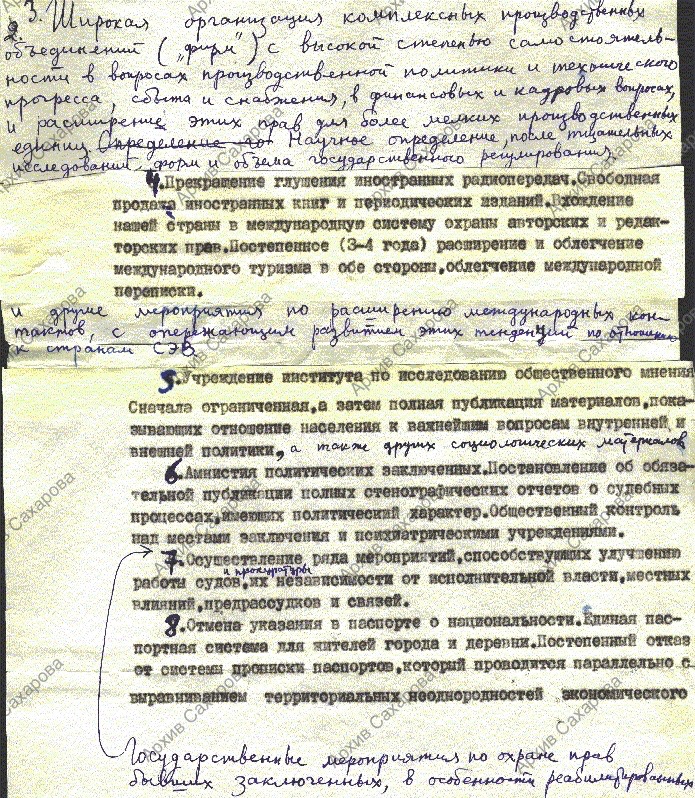 3. Широкая организация комплексных производственных
объединений ("фирм") с высокой степенью самостоятель-
ности в вопросах производственной политики и технического
прогресса, сбыта и снабжения, в финансовых и кадровых вопросах,
и расширение этих прав для более мелких производственных
единиц. Определение по Научное определение, после тщательных
исследований, форм и объема государственного регулирования.
4.Прекращение глушения иностранных радиопередач.Свободная
продажа иностранных книг и периодических изданий.Вхождение
нашей страны в международную систему охраны авторских и редак-
торских прав.Постепенное (3-4 года) расширение и облегчение
международного туризма в обе стороны,облегчение международной
переписки.
и другие мероприятия по расширению международных кон-
тактов, с опережающим развитием этих тенденций по отношению
к странам СЭВ.
5.Учреждение института по исследованию общественного мнения
Сначала ограниченная,а затем полная публикация материалов,пока-
зывающих отношение населения к важнейшим вопросам внутренней и
внешней политики, а также других социологических материалов
6.Амнистия политических заключенных.Постановление об обяза-
тельной публикации полных стенографических отчетов о судебных
процессах,имеющих политический характер.Общественный контроль
над местами заключения и психиатрическими учреждениями.
7.Осуществление ряда мероприятий,способствующих улучшению
и прокуратуры
работы судов,их независимости от исполнительной власти,местных
влияний,предрассудков и связей.
8.Отмена указания в паспорте о национальности.Единая пас-
портная система для жителей города и деревни.Постепенный отказ
от системы прописки паспортов,который проводится параллельно с
выравниванием территориальных неоднородностей экономического
Государственные мероприятия по охране прав
бывших заключенных, в особенности реабилитированных
Архив Сахарова